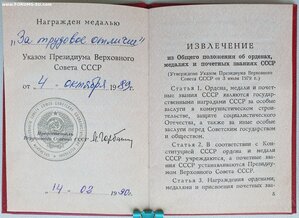 Награжден медалью
„За трудовое отличие"
Указом Президиума Верховного
Совета СССР
от „4" октября 1989 г.
14 02 1990 г.
ИЗВЛЕЧЕНИЕ
из Общего положения об орденах,
медалях и почетных званиях СССР
(Утверждено Указом Президиума Верховного
Совета СССР от 3 июля 1979 г.)
Статья 1. Ордена, медали и почет-
ные звания СССР являются
государственными наградами
СССР за особые заслуги
в коммунистическом строи-
тельстве, защите социалистического
Отечества, а также за иные особые
заслуги перед Советским государством
и обществом.
Статья 2. В соответствии с Кон-
ституцией СССР ордена и медали
СССР учреждаются, а почетные звания
СССР устанавливаются Президиу-
мом Верховного Совета СССР.
Статья 3. Награждения орденами,
медалями и присвоения почетных зва-
5